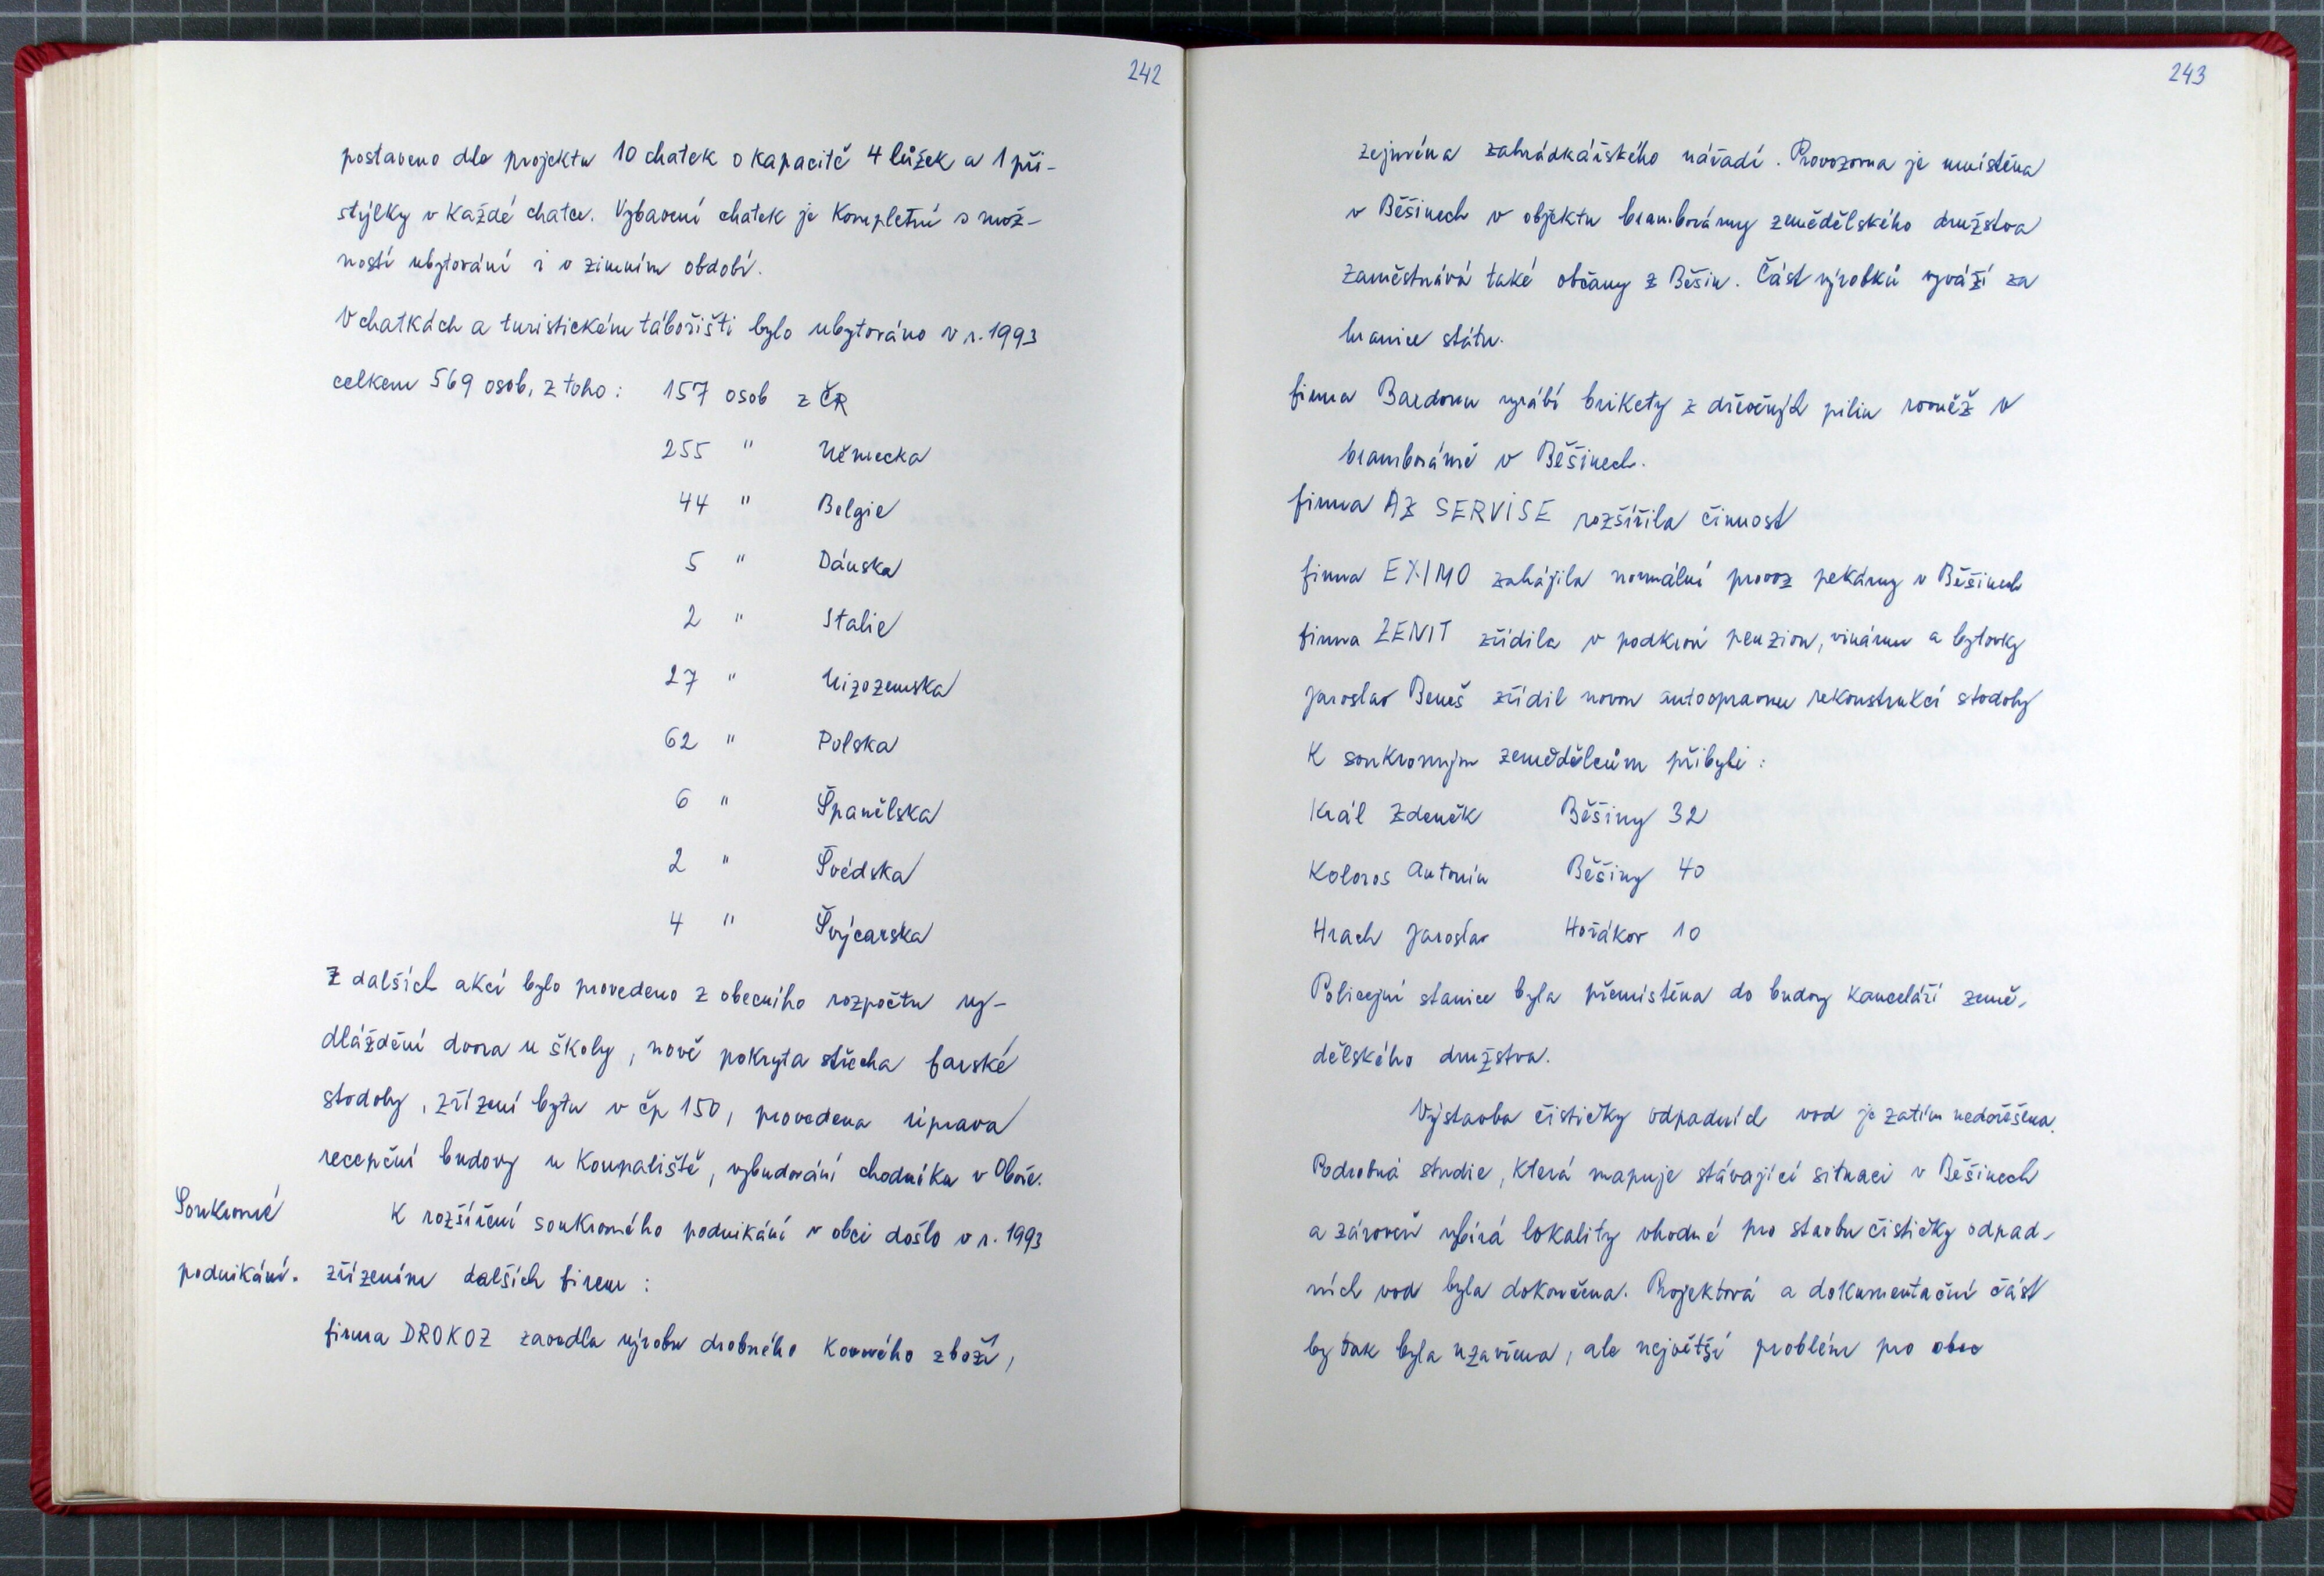 242
postaveno dle projektu 10 chatek o kapacitě 4 lůžek a 1 při-
stýlky v každé chatce. Vybavení chatek je kompletní s mož-
ností ubytování i v zimním období.
V chatkách a turistickém tábořišti bylo ubytováno v r. 1993
celkem 569 osob, z toho: 157 osob z ČR
255 " Německa
44 " Belgie
5 " Dánska
2 " Itálie
27 " Nizozemska
62 " Polska
6 " Španělska
2 " Švédska
4 " Švýcarska
Z dalších akcí bylo provedeno z obecního rozpočtu vy-
dláždění dvora u školy, nově pokryta střecha farské
stodoly, zřízení bytu v čp 150, provedena úprava
recepční budovy u koupaliště, vybudování chodníku v Oboře.
Soukromé podnikání.
K rozšíření soukromého podnikání v obci došlo v r. 1993
zřízením dalších firem:
firma DROKOZ zavedla výrobu drobného kovového zboží,
243
zejména zahrádkářského nářadí. Provozovna je umístěna
v Běšinech v objektu bramborárny zemědělského družstva
zaměstnává také občany z Běšin. Část výrobků vyváží za
hranice státu.
firma Bardonu vyrábí brikety z dřevěných pilin rovněž v
bramborárně v Běšinech.
firma AZ SERVISE rozšířila činnost
firma EXIMO zahájila normální provoz pekárny v Běšinech
firma ZENIT zřídila v podkroví penzion, vinárnu a bytovky
Jaroslav Beneš zřídil novou autoopravnu rekonstrukcí stodoly
K soukromým zemědělcům přibyli:
Král Zdeněk Běšiny 32
Koloros Antonín Běšiny 40
Hrach Jaroslav Hořákov 10
Policejní stanice byla přemístěna do budovy kanceláří země-
dělského družstva.
Výstavba čističky odpadních vod je zatím nedořešena.
Podrobná studie, která mapuje stávající situaci v Běšinech
a zároveň vybírá lokality vhodné pro stavbu čističky odpad-
ních vod byla dokončena. Projektová a dokumentační část
by tak byla uzavřena, ale největší problém pro obec